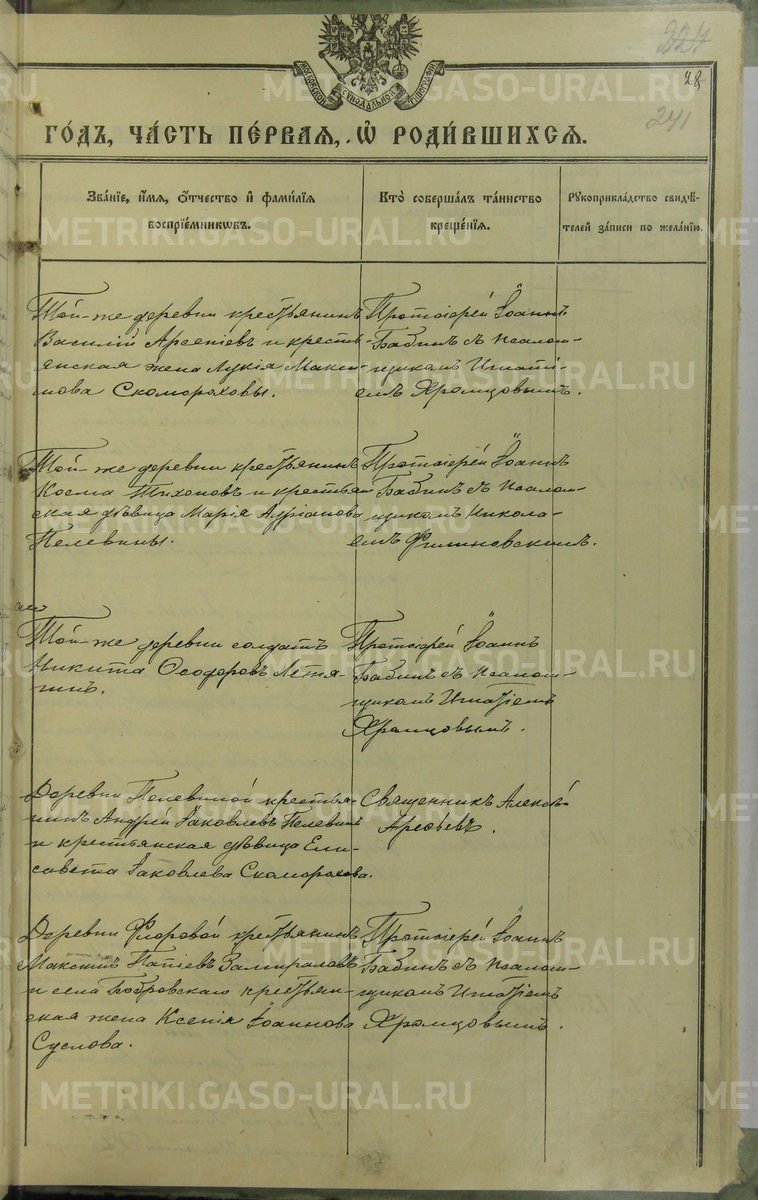 227
28
241
МОСКОВСКОЙ СѴНОДАЛЬНОЙ ТИПОГРАФІИ
ГО́ДЪ, ЧА́СТЬ ПЕ́РВАЯ, Ѡ҆ РОДИ́ВШИХСЯ.
Зва́нїе, и҆́мя, ѻ҆́тчество и҆ фами́лїя
воспрїе́мникѡвъ.
Кто̀ соверша́лъ та́инство
креще́нїя.
Рꙋкоприкла́дство свидѣ́-
телей за́писи по жела́нїю.
Той-же деревни крестьянинъ
Василій Арсеніевъ и кресть-
янская жена Лукія Макси-
мова Скомороховы.
Протоіерей Іоаннъ
Бабинъ съ псалом-
щикомъ Игнаті-
емъ Хромцовымъ.
Той-же деревни крестьянинъ
Косма Тихоновъ и крестьян-
ская дѣвица Марія Адріанова
Пелевины.
Протоіерей Іоаннъ
Бабинъ съ псалом-
щикомъ Никола-
емъ Филиновскимъ.
Той-же деревни солдатъ
Никита Ѳеодоровъ Летя-
гинъ.
Протоіерей Іоаннъ
Бабинъ съ псалом-
щикомъ Игнатіемъ
Хромцовымъ.
Деревни Пелевиной крестья-
нинъ Андрей Іаковлевъ Пелевинъ
и крестьянская дѣвица Ели-
савета Іаковлева Скоморохова.
Священникъ Алексѣй
Арефьевъ.
Деревни Фроровой крестьянинъ
Максимъ Папіевъ Замираловъ
и села Бобровскаго крестьян-
ская жена Ксенія Іоаннова
Суслова.
Протоіерей Іоаннъ
Бабинъ съ псалом-
щикомъ Игнатіемъ
Хромцовымъ.
METRIKI.GASO-URAL.RU
METRIKI.GASO-URAL.RU
METRIKI.GASO-URAL.RU
METRIKI.GASO-URAL.RU
METRIKI.GASO-URAL.RU
METRIKI.GASO-URAL.RU
METRIKI.GASO-URAL.RU
METRIKI.GASO-URAL.RU